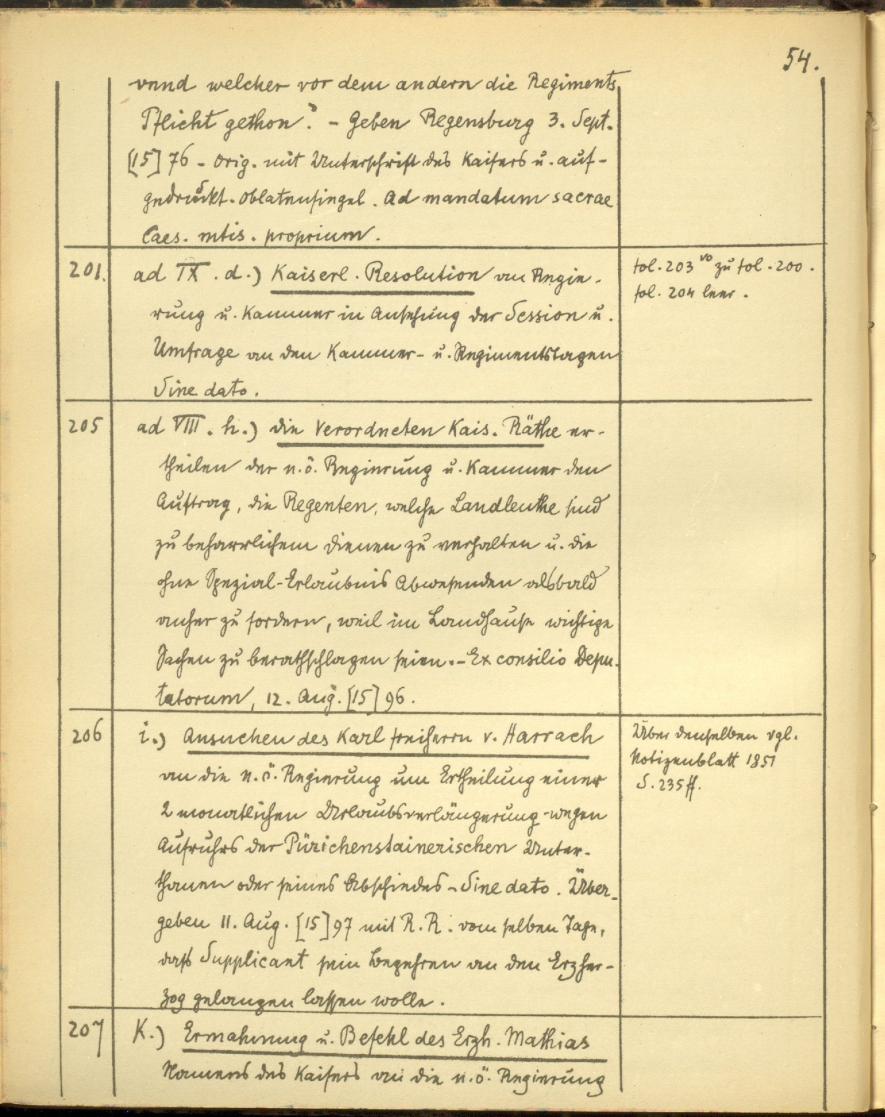 54.
vnnd welcher vor dem andern die Regiments
Pflicht gethon." - Geben Regensburg 3. Sept.
[15] 76 - Orig. mit Unterschrift des Kaisers u. auf-
gedrückt. Oblatensiegel. Ad mandatum sacrae
Caes. mtis. proprium.
201. ad IX. d.) Kaiserl. Resolution an Regie-
rung u. Kammer in Ansehung der Session u.
Umfrage an den Kammer- u. Regimentstagen
Sine dato.
fol. 203 vo zu fol. 200.
fol. 204 leer.
205 ad VIII. h.) die Verordneten Kais. Räthe er-
theilen der n.ö. Regierung u. Kammer den
Auftrag, die Regenten, welche Landleuthe sind
zu beharrlichem Dienen zu verhalten u. die
ohne Spezial-Erlaubnis Abwesenden alsbald
anher zu fordern, weil im Landhause wichtige
Sachen zu berathschlagen seien. - Ex consilio Depu-
tatorum, 12. Aug. [15] 96.
206 i.) Ansuchen des Karl Freiherrn v. Harrach
an die n.ö. Regierung um Ertheilung einer
2 monatlichen Urlaubsverlängerung wegen
Aufruhrs der Pürichenstainerischen Unter-
thanen oder seines Abschiedes - Sine dato. Über-
geben 11. Aug. [15] 97 mit R.R. vom selben Tage,
daß Supplicant sein Begehren an den Erzher-
zog gelangen lassen wolle.
Über denselben vgl.
Notizenblatt 1851
S. 235 ff.
207 K.) Ermahnung u. Befehl des Erzh. Mathias
Namens des Kaisers an die n.ö. Regierung